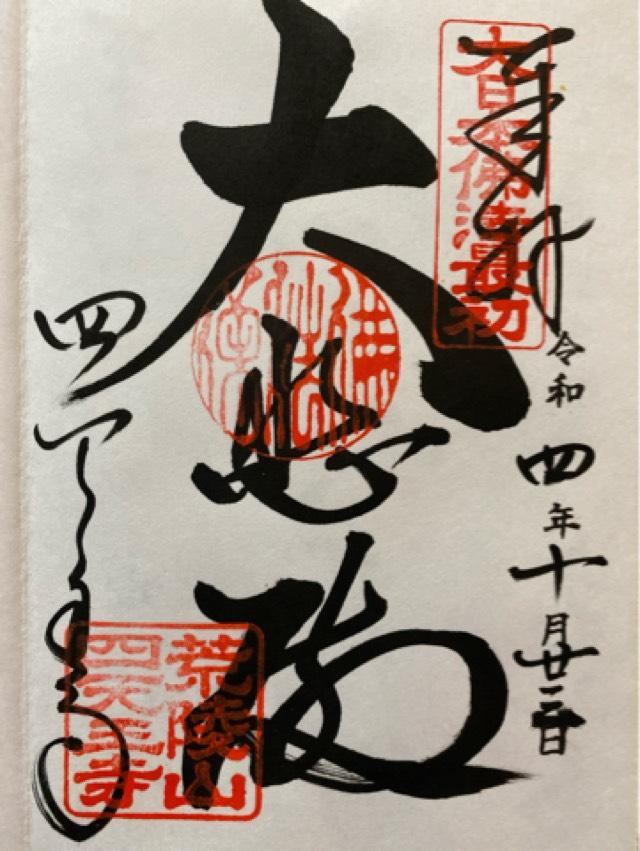 奉拝
大日本佛法最初
令和四年十月廿三日
大悲殿
四天王寺
荒陵山
四天王寺